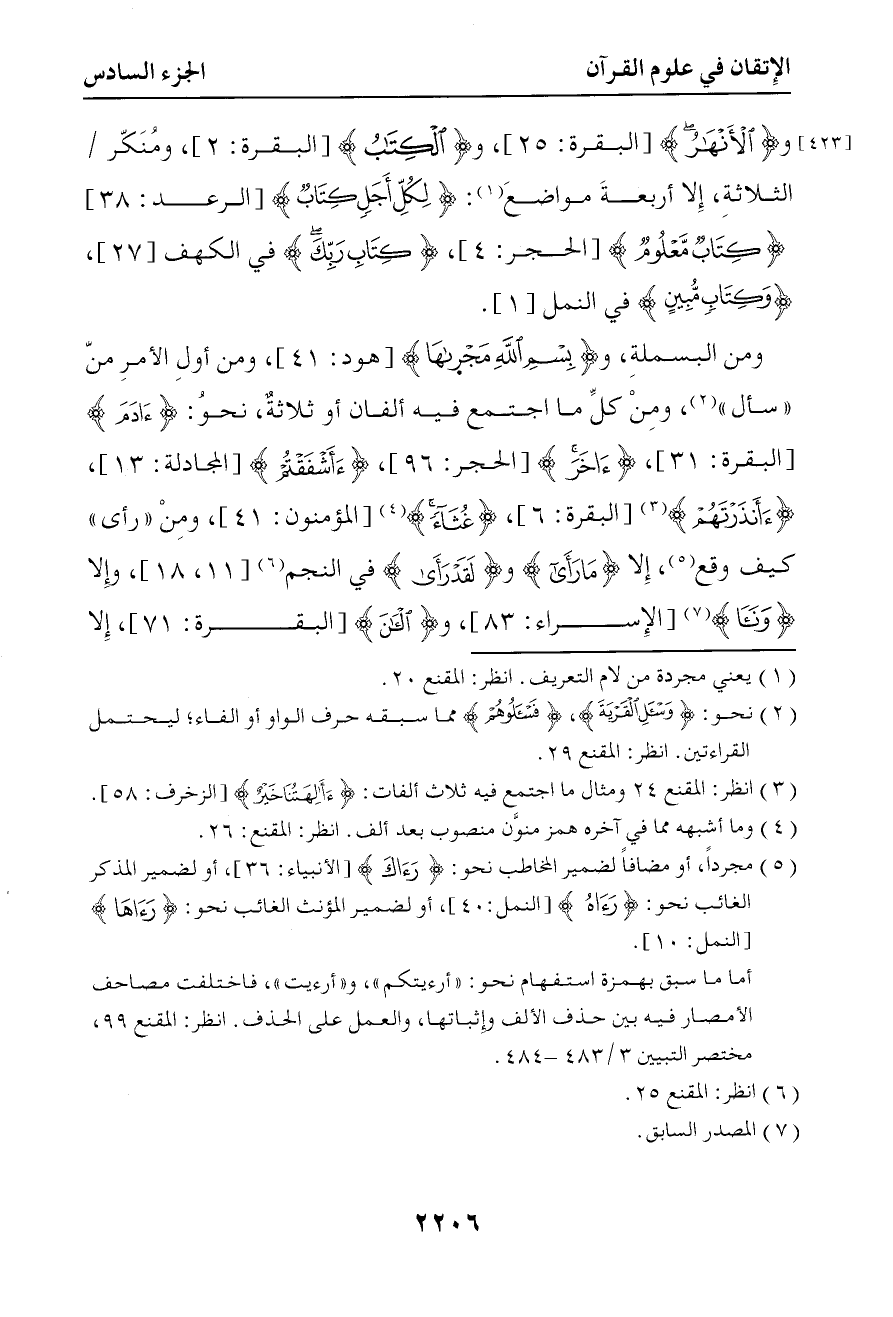 الإتقان في علوم القرآن
الجزء السادس
[٤٢٣] و﴿ ٱلْأَنْهَٰرُۖ ﴾ [البقرة: ٢٥]، و﴿ ٱلْكِتَٰبُ ﴾ [البقرة: ٢]، ومُنَكّر /
الثلاثة، إلا أربعةَ مواضعَ(١): ﴿ لِكُلِّ أَجَلٍ كِتَابٌ ﴾ [الرعد: ٣٨]
﴿ كِتَابٌ مَّعْلُومٌ ﴾ [الحجر: ٤]، ﴿ كِتَابِ رَبِّكَۖ ﴾ في الكهف [٢٧]،
﴿ وَكِتَابٍ مُّبِينٍ ﴾ في النمل [١].
ومن البسملةِ، و﴿ بِسْمِ ٱللَّهِ مَجْر۪ىٰهَا ﴾ [هود: ٤١]، ومن أولِ الأمرِ منّ
«سأل»(٢)، ومنْ كلِّ ما اجتمع فيه ألفان أو ثلاثةٌ، نحوُ: ﴿ ءَادَمَ ﴾
[البقرة: ٣١]، ﴿ ءَاخَرَۚ ﴾ [الحجر: ٩٦]، ﴿ ءَأَشْفَقْتُمْ ﴾ [المجادلة: ١٣]،
﴿ ءَأَنذَرْتَهُمْ ﴾(٣) [البقرة: ٦]، ﴿ غُثَآءًۚ ﴾(٤) [المؤمنون: ٤١]، ومنْ «رأى»
كيف وقع(٥)، إلا ﴿ مَارَأَىٰٓ ﴾ و﴿ لَقَدْ رَأَىٰ ﴾ في النجم(٦) [١١، ١٨]، وإلا
﴿ وَنَـَٔا ﴾(٧) [الإسراء: ٨٣]، و﴿ ٱلْـَٰٔنَ ﴾ [البقرة: ٧١]، إلا
(١) يعني مجردة من لام التعريف. انظر: المقنع ٢٠.
(٢) نحو: ﴿ وَسْـَٔلِ ٱلْقَرْيَةَ ﴾، ﴿ فَسْـَٔلُوهُمْ ﴾ مما سبقه حرف الواو أو الفاء؛ ليحتمل
القراءتين. انظر: المقنع ٢٩.
(٣) انظر: المقنع ٢٤ ومثال ما اجتمع فيه ثلاث ألفات: ﴿ ءَأَٰلِهَتُنَا خَيْرٌ ﴾ [الزخرف: ٥٨].
(٤) وما أشبهه مما في آخره همز منوَّن منصوب بعد ألف. انظر: المقنع: ٢٦.
(٥) مجرداً، أو مضافاً لضمير المخاطب نحو: ﴿ رَءَاكَ ﴾ [الأنبياء: ٣٦]، أو لضمير المذكر
الغائب نحو: ﴿ رَءَاهُ ﴾ [النمل: ٤٠]، أو لضمير المؤنث الغائب نحو: ﴿ رَءَاهَا ﴾
[النمل: ١٠].
أما ما سبق بهمزة استفهام نحو: «أرءيتكم»، و«أرءيت»، فاختلفت مصاحف
الأمصار فيه بين حذف الألف وإثباتها، والعمل على الحذف. انظر: المقنع ٩٩،
مختصر التبيين ٣/ ٤٨٣ – ٤٨٤.
(٦) انظر: المقنع ٢٥.
(٧) المصدر السابق.
٢٢٠٦